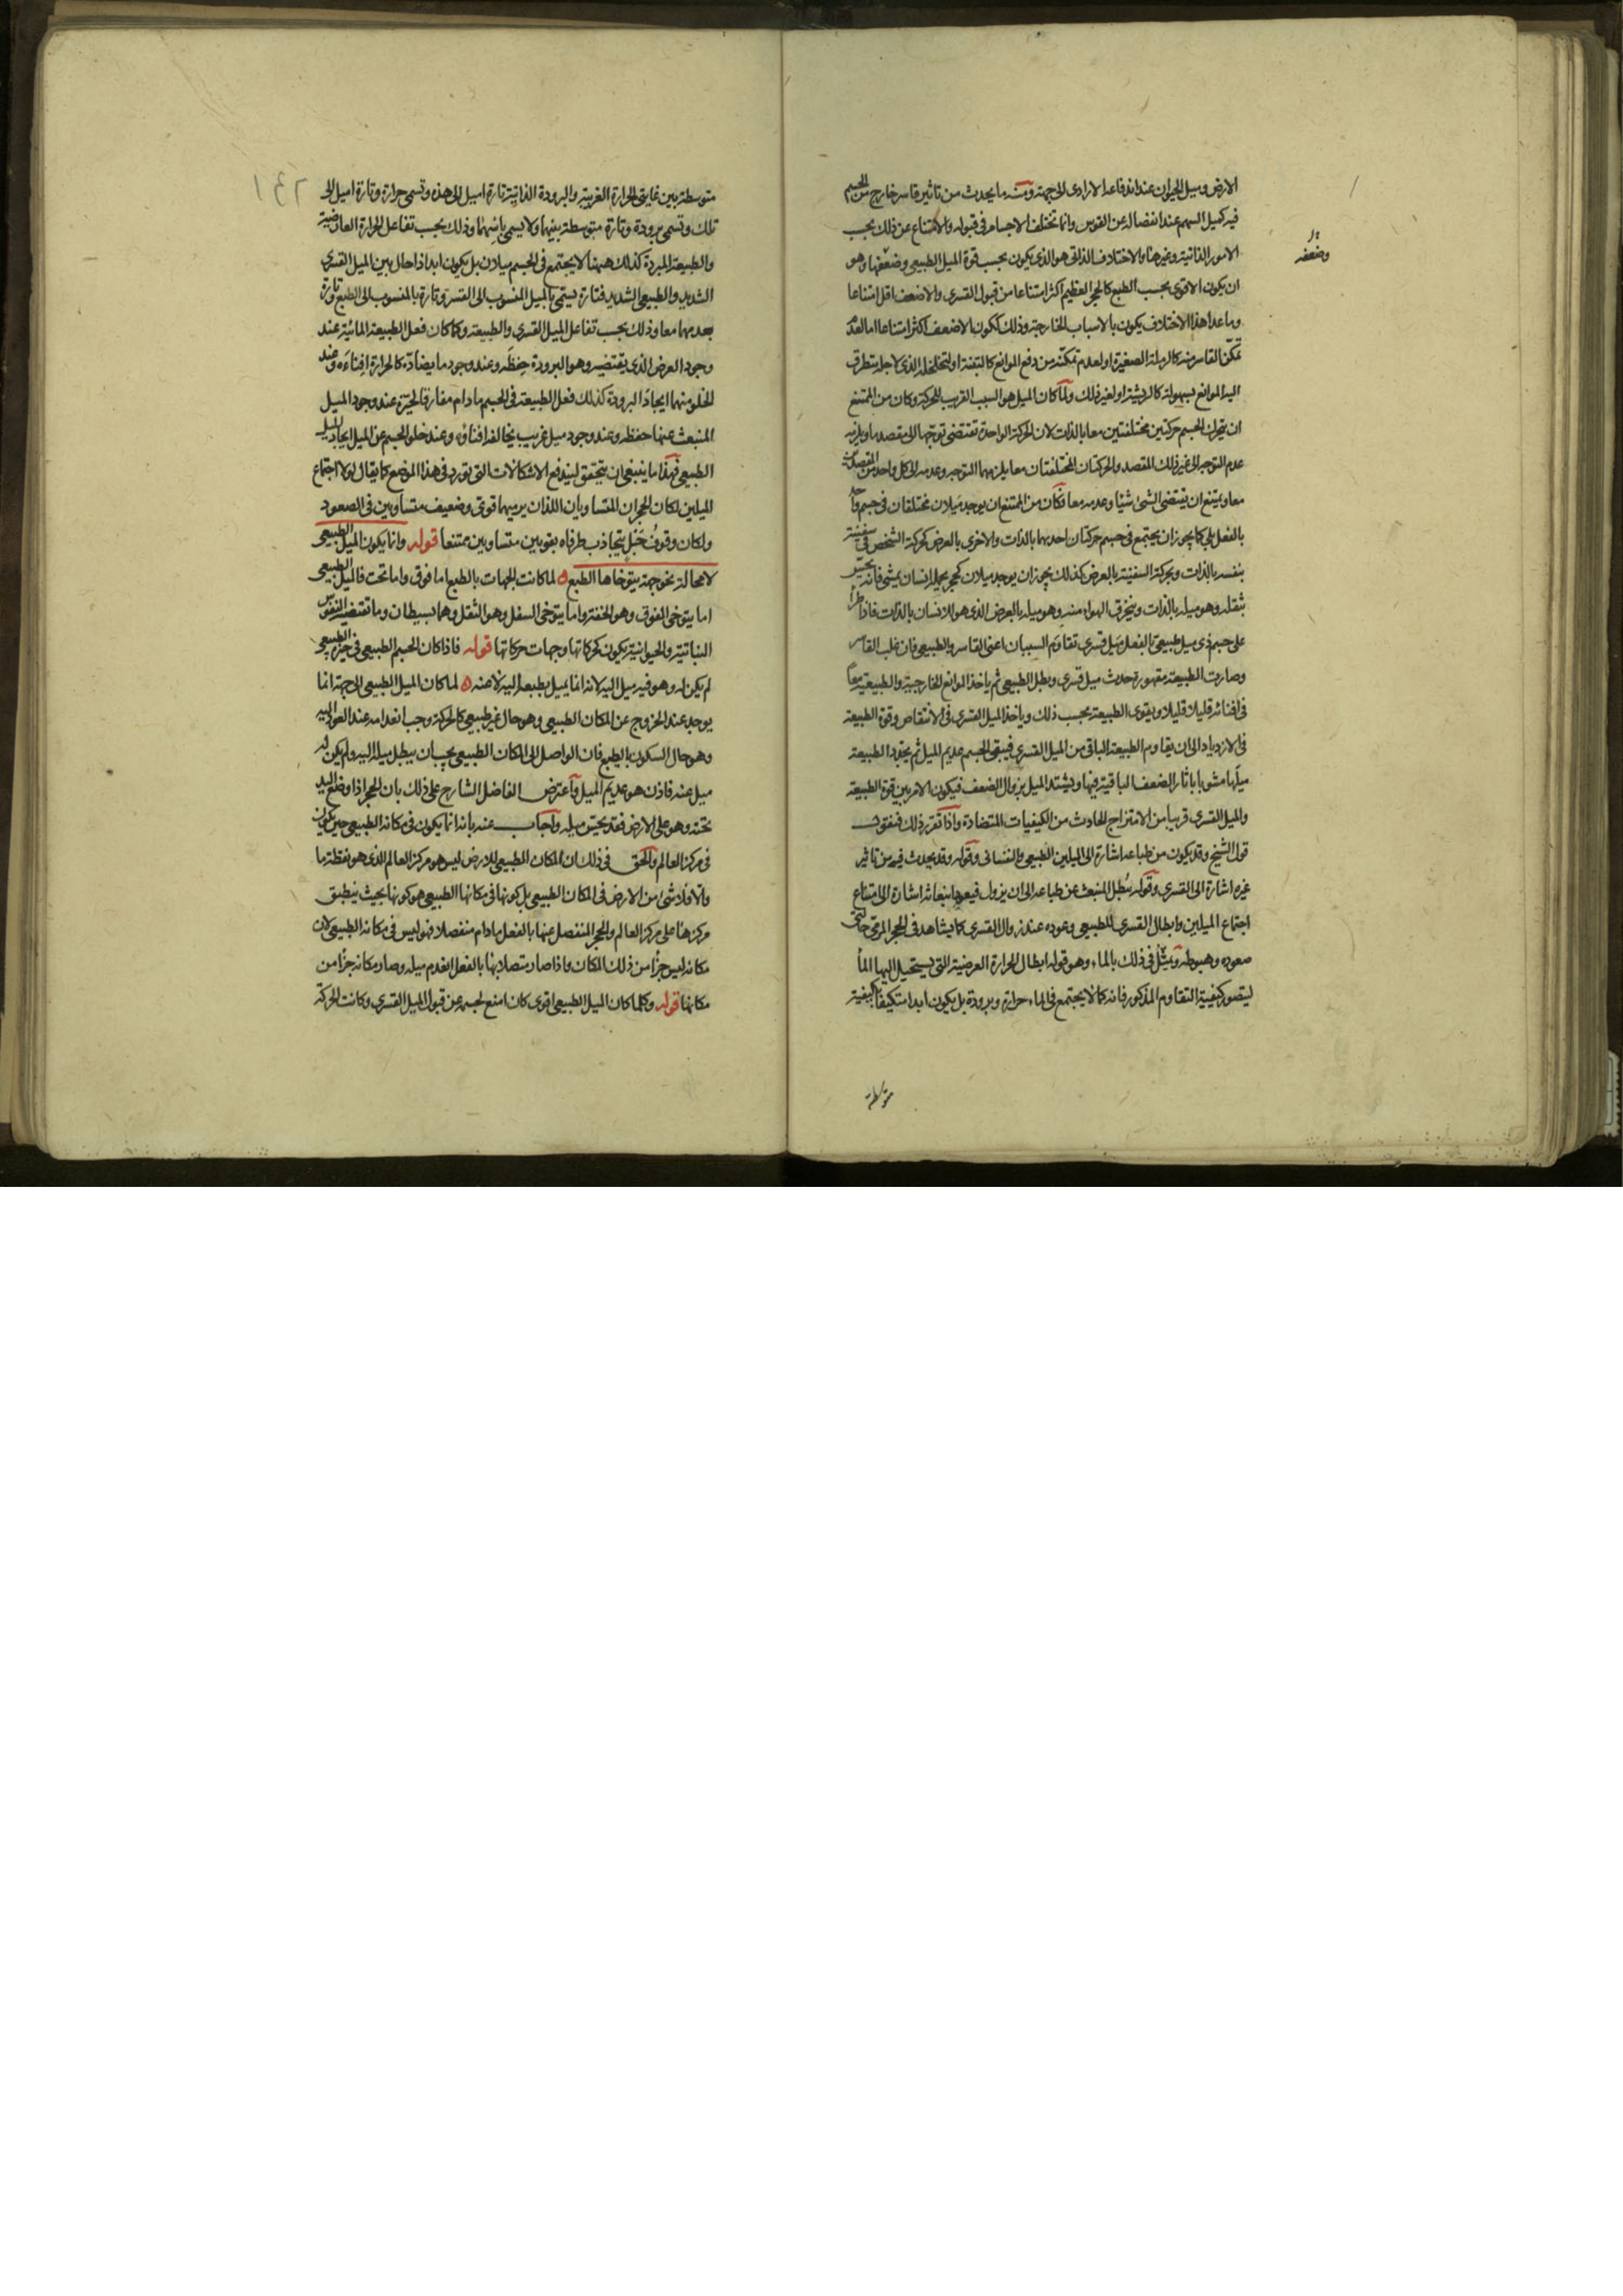 الارض وميل الحيوان عند اندفاعه الارادى الى جهة ومنه ما يحدث من تاثير قاسر خارج عن الجسم
فيه كميل السهم عند انفصاله عن القوس وانما تختلف الاجسام فى قبوله والامتناع عن ذلك بحسب
الامور الذاتية وغيرها والاختلاف الذاتى هو الذى يكون بحسب قوة الميل الطبيعى وضعفها وهو
وضعفه
ان يكون الاقوى بحسب الطبع كالحجر العظيم اكثر امتناعا من قبول القسرى والاضعف اقل امتناعا
وما عدا هذا الاختلاف يكون بالاسباب الخارجة وذلك ككون الاضعف اكثر امتناعا اما لعدم
تمكن القاسر منه كالرملة الصغيرة او لعدم تمكنه من دفع الموانع كالتبنة او لتخلخله الذى لاجله يتطرق
اليه الموانع بسهولة كالريشة او لغير ذلك ولما كان الميل هو السبب القريب للحركة وكان من الممتنع
ان يتحرك الجسم حركتين مختلفتين معا بالذات لان الحركة الواحدة تقتضى توجها الى مقصد ما ويلزمه
عدم التوجه الى غير ذلك المقصد والحركتان المختلفتان معا يلزمهما التوجه وعدمه الى كل واحد من المقصدين
معا ويمتنع ان يقتضى الشئ شيئا وعدمه معا فكان من الممتنع ان يوجد ميلان مختلفان فى جسم واحد
بالفعل بلى كما يجوز ان يجتمع فى جسم حركتان احديهما بالذات والاخرى بالعرض كحركة الشخص فى سفينة
بنفسه بالذات وبحركة السفينة بالعرض كذلك يجوز ان يوجد ميلان كحجر يحمله انسان يمشى فانه يحس
بثقله وهو ميله بالذات وينخرق الهواء منه وهو ميله بالعرض الذى هو للانسان بالذات فاذا طرأ
على جسم ذى ميل طبيعى بالفعل ميل قسرى تقاوم السببان اعنى القاسر والطبيعى فان غلب القاسر
وصارت الطبيعة مقهورة حدث ميل قسرى وبطل الطبيعى ثم ياخذ الموانع الخارجية والطبيعية معا
فى افنائه قليلا قليلا ويقوى الطبيعة بحسب ذلك وياخذ الميل القسرى فى الانتقاص وقوة الطبيعة
فى الازدياد الى ان يقاوم الطبيعة الباقى من الميل القسرى فيبقى الجسم عديم الميل ثم يجدد الطبيعة
ميلها مشوبا باثار الضعف الباقية فيها ويشتد الميل بزوال الضعف فيكون الامر بين قوة الطبيعة
والميل القسرى قريبا من الامتزاج الحادث من الكيفيات المتضادة واذا تقرر ذلك فنقول
قول الشيخ وقد يكون من طباعه اشارة الى الميلين الطبيعى والنفسانى وقوله وقد يحدث فيه من تاثير
غيره اشارة الى القسرى وقوله يبطل المنبعث عن طباعه الى ان يزول فيعود انبعاثه اشارة الى امتناع
اجتماع الميلين وابطال القسرى للطبيعى وعوده عند زوال القسرى كما يشاهد فى الحجر المرمى حالتى
صعوده وهبوطه ويمثل فى ذلك بالماء وهو قوله ابطال الحرارة العرضية التى يستحيل اليها الماء
ليتصور كيفية التقاوم المذكور فانه كما لا يجتمع فى الماء حرارة وبرودة بل يكون ابدا متكيفا بكيفية
متوسطة
١٣٦
متوسطة بين غايتى الحرارة الغريبة والبرودة الذاتية تارة اميل الى هذه وتسمى حرارة وتارة اميل الى
تلك وتسمى برودة وتارة متوسطة بينهما ولا يسمى باسمهما وذلك بحسب تفاعل الحرارة العارضية
والطبيعة المبردة كذلك ههنا لا يجتمع فى الجسم ميلان بل يكون ابدا ذا حال بين الميل القسرى
الشديد والطبيعى الشديد فتارة يسمى بالميل المنسوب الى القسر وتارة بالمنسوب الى الطبع وتارة
بعدمهما معا وذلك بحسب تفاعل الميل القسرى والطبيعة وكما كان فعل الطبيعة المائية عند
وجود العرض الذى يقتضيه وهو البرودة حفظه وعند وجود ما يضاده كالحرارة افناءه وعند
الخلو منهما ايجاد البرودة كذلك فعل الطبيعة فى الجسم ما دام مفارقا لحيزه عند وجود الميل
المنبعث عنها حفظه وعند وجود ميل غريب يخالفه افناؤه وعند خلو الجسم عن الميل ايجاد الميل
الطبيعى فهذا ما ينبغى ان يتحقق ليندفع الاشكالات التى تورد فى هذا الموضع كما يقال لولا اجتماع
الميلين لكان الحجران المتساويان اللذان يرميهما قوى وضعيف متساويين فى الصعود
ولكان وقوف حبل يتجاذب طرفاه بقوتين متساويين ممتنعا قوله وانما يكون الميل الطبيعى
لا محالة نحو جهة يتوخاها الطبع ه لما كانت الجهات بالطبع اما فوق واما تحت فالميل الطبيعى
اما يتوخى الفوق وهو الخفة واما يتوخى السفل وهو الثقل وهما بسيطان وما تقتضيه النفوس
النباتية والحيوانية يكون كحركاتها وجهات حركاتها قوله فاذا كان الجسم الطبيعى فى حيزه الطبيعى
لم يكن له وهو فيه ميل اليه لانه انما يميل بطبعه اليه لا عنه ه لما كان الميل الطبيعى الى جهة انما
يوجد عند الخروج عن المكان الطبيعى وهو حال غير طبيعى كالحركة وجب انعدامه عند العود اليه
وهو حال السكون بالطبع فان الواصل الى المكان الطبيعى يجب ان يبطل ميله اليه ولم يكن له
ميل عنه فاذن هو عديم الميل واعترض الفاضل الشارح على ذلك بان الحجر اذا وضع اليد
تحته وهو على الارض فقد يحس ميله واجاب عنه بانه انما يكون فى مكانه الطبيعى حين يكون
فى مركز العالم والحق فى ذلك ان المكان الطبيعى للارض ليس هو مركز العالم الذى هو نقطة ما
والا فلا شئ من الارض فى المكان الطبيعى بل كونها فى مكانها الطبيعى هو كونها بحيث ينطبق
مركزها على مركز العالم والحجر المنفصل عنها بالفعل ما دام منفصلا فهو ليس فى مكانه الطبيعى لان
مكانه ليس جزأ من ذلك المكان واذا صار متصلا بها بالفعل انعدم ميله وصار مكانه جزأ من
مكانها قوله وكلما كان الميل الطبيعى اقوى كان امنع لجسمه عن قبول الميل القسرى وكانت الحركة